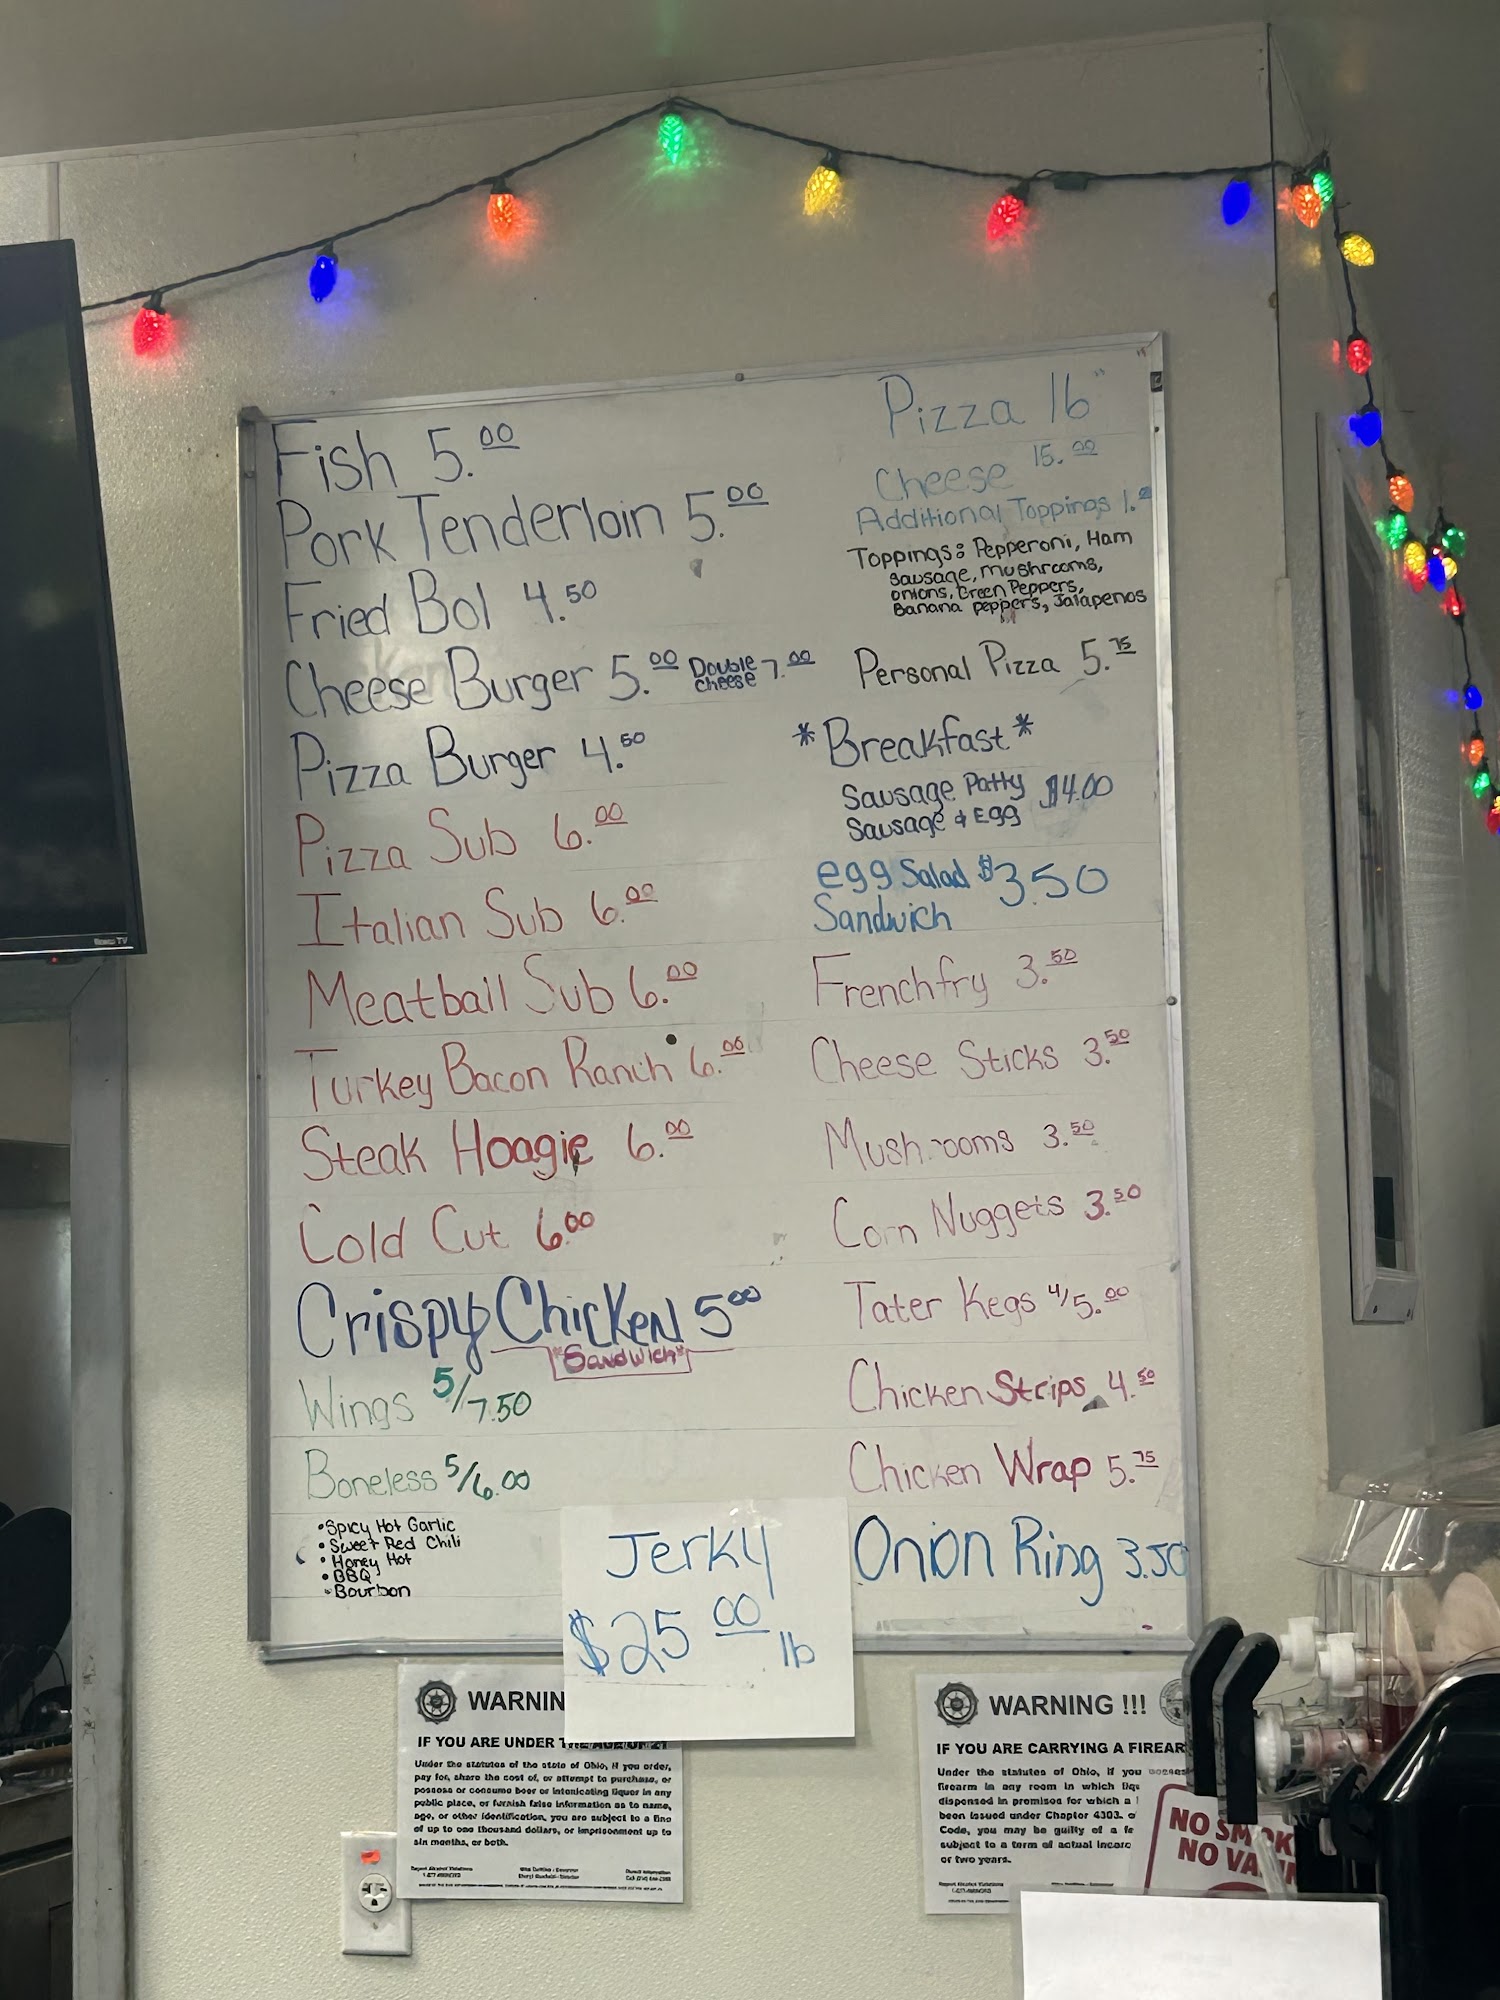 Fish 5.00
Pork Tenderloin 5.00
Fried Bol 4.50
Cheese Burger 5.00 Double cheese 7.00
Pizza Burger 4.50
Pizza Sub 6.00
Italian Sub 6.00
Meatball Sub 6.00
Turkey Bacon Ranch 6.00
Steak Hoagie 6.00
Cold Cut 6.00
Crispy Chicken 5.00
"Sandwich"
Wings 5/7.50
Boneless 5/6.00
• Spicy Hot Garlic
• Sweet Red Chili
• Honey Hot
• BBQ
• Bourbon
Pizza 16"
Cheese 15.00
Additional Toppings 1.00
Toppings: Pepperoni, Ham
Sausage, Mushrooms,
Onions, Green Peppers,
Banana peppers, Jalapenos
Personal Pizza 5.75
*Breakfast*
Sausage Patty $4.00
Sausage & Egg
egg Salad $3.50
Sandwich
Frenchfry 3.50
Cheese Sticks 3.50
Mushrooms 3.50
Corn Nuggets 3.50
Tater Kegs 4/5.00
Chicken Strips 4.50
Chicken Wrap 5.75
Onion Ring 3.50
Jerky
$25.00 lb
Roku TV
WARNIN
IF YOU ARE UNDER THE AGE OF 21
Under the statutes of the state of Ohio, if you order,
pay for, share the cost of, or attempt to purchase, or
possess or consume beer or intoxicating liquor in any
public place, or furnish false information as to name,
age, or other identification, you are subject to a fine
of up to one thousand dollars, or imprisonment up to
six months, or both.
WARNING !!!
IF YOU ARE CARRYING A FIREAR
Under the statutes of Ohio, if you
firearm in any room in which liqu
dispensed in premises for which a
been issued under Chapter 4303. o
Code, you may be guilty of a fe
subject to a term of actual incarc
or two years.
NO SMOK
NO VA